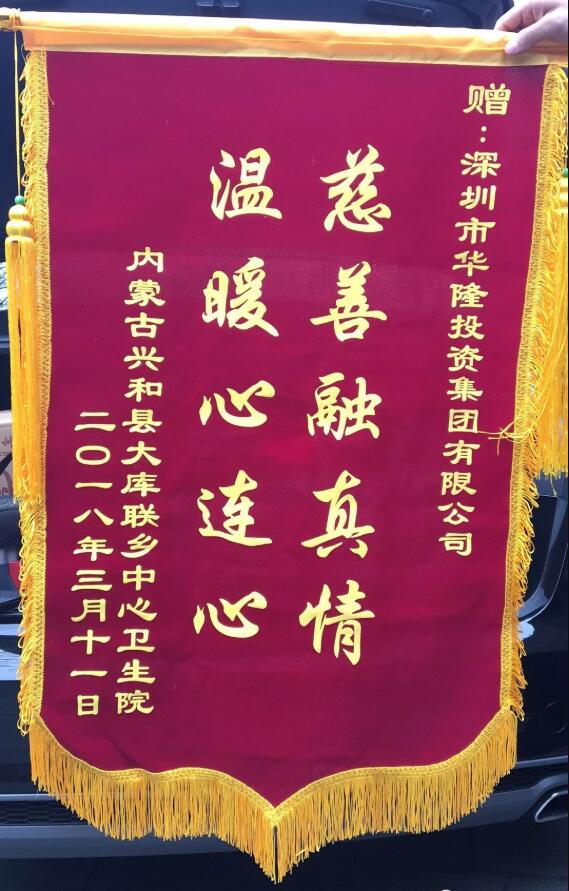 赠：深圳市华隆投资集团有限公司
慈善融真情
温暖心连心
内蒙古兴和县大库联乡中心卫生院
二〇一八年三月十一日